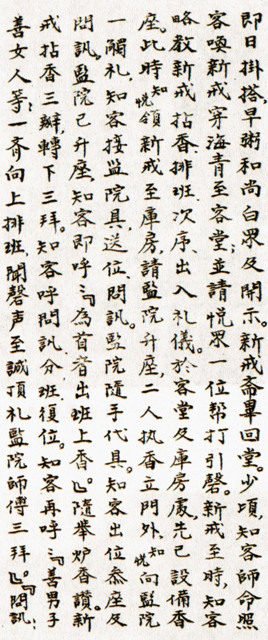 即日掛搭，早粥和尚白眾及開示。新戒斋畢回堂。少項，知客師命照
客喚新戒穿海青至客堂；並請悅眾一位帮打引磬。新戒至時，知客
略教新戒拈香、排班、次序、出入礼儀。於客堂及庫房處，先已設備香
座。此時知悅領新戒至庫房，請監院升座，二人执香立門外，知悅向監院
一觸礼，知客接监院具，送位、問訊。监院隨手代具。知客出位叅座及
問訊。監院已升座，知客即呼：『為首者出班上香』。隨举炉香讚。新
戒拈香三瓣，轉下三拜。知客呼問訊，分班復位。知客再呼：『善男子
善女人等；一齐向上排班，聞磬声至誠頂礼監院師傅三拜』。『問訊，